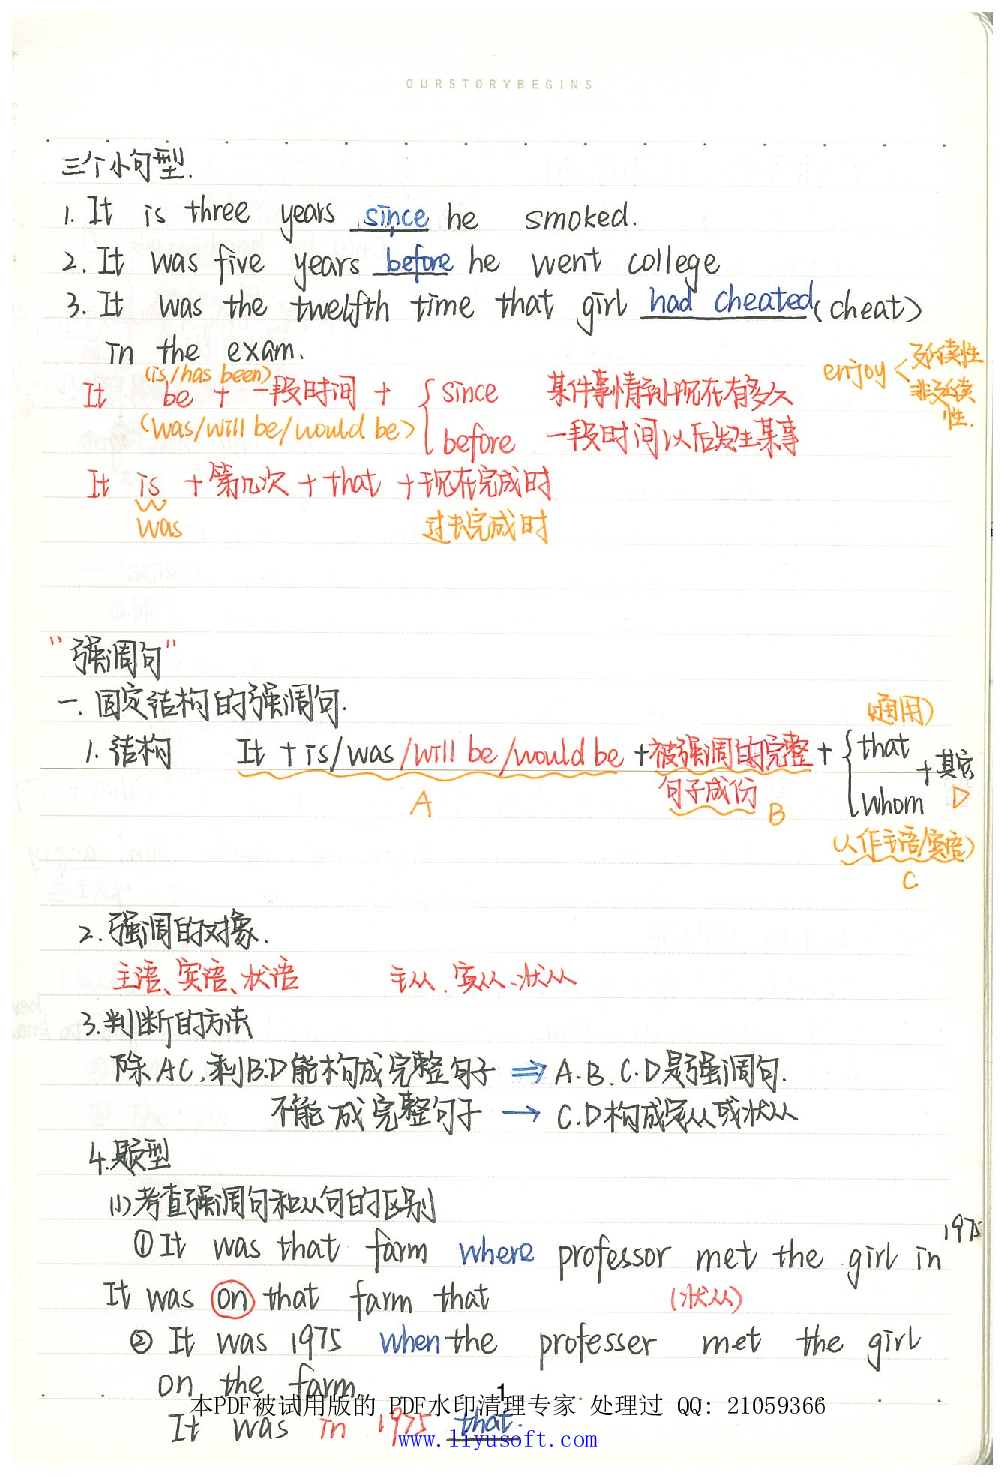 OURSTORYBEGINS
三个小句型.
1. It is three years since he smoked.
2. It was five years before he went college
3. It was the twelfth time that girl had cheated (cheat)
in the exam.
enjoy < 延续性
非延续性.
(is/has been)
It be + 一段时间 + { since 某件事情到现在有多久
(was/will be/would be) before 一段时间以后发生某事
It is + 第几次 + that + 现在完成时
was 过去完成时
"强调句"
一. 固定结构的强调句.
(通用)
1. 结构 It + is/was/will be/would be + 被强调的完整 + { that + 其它
A 句子成份 B whom D
(人作主语/宾语)
C
2. 强调的对象.
主语、宾语、状语 主从、宾从、状从
3. 判断的方法
除AC,剩B.D能构成完整句子 ⇒ A.B.C.D是强调句.
不能成完整句子 → C.D构成定从或状从
4. 题型
(1) 考查强调句和从句的区别
① It was that farm where professor met the girl in 1975
It was on that farm that (状从)
② It was 1975 when the professer met the girl
on the farm.
It was in 1975 that.
1
本PDF被试用版的 PDF水印清理专家 处理过 QQ: 21059366
www.liyusoft.com